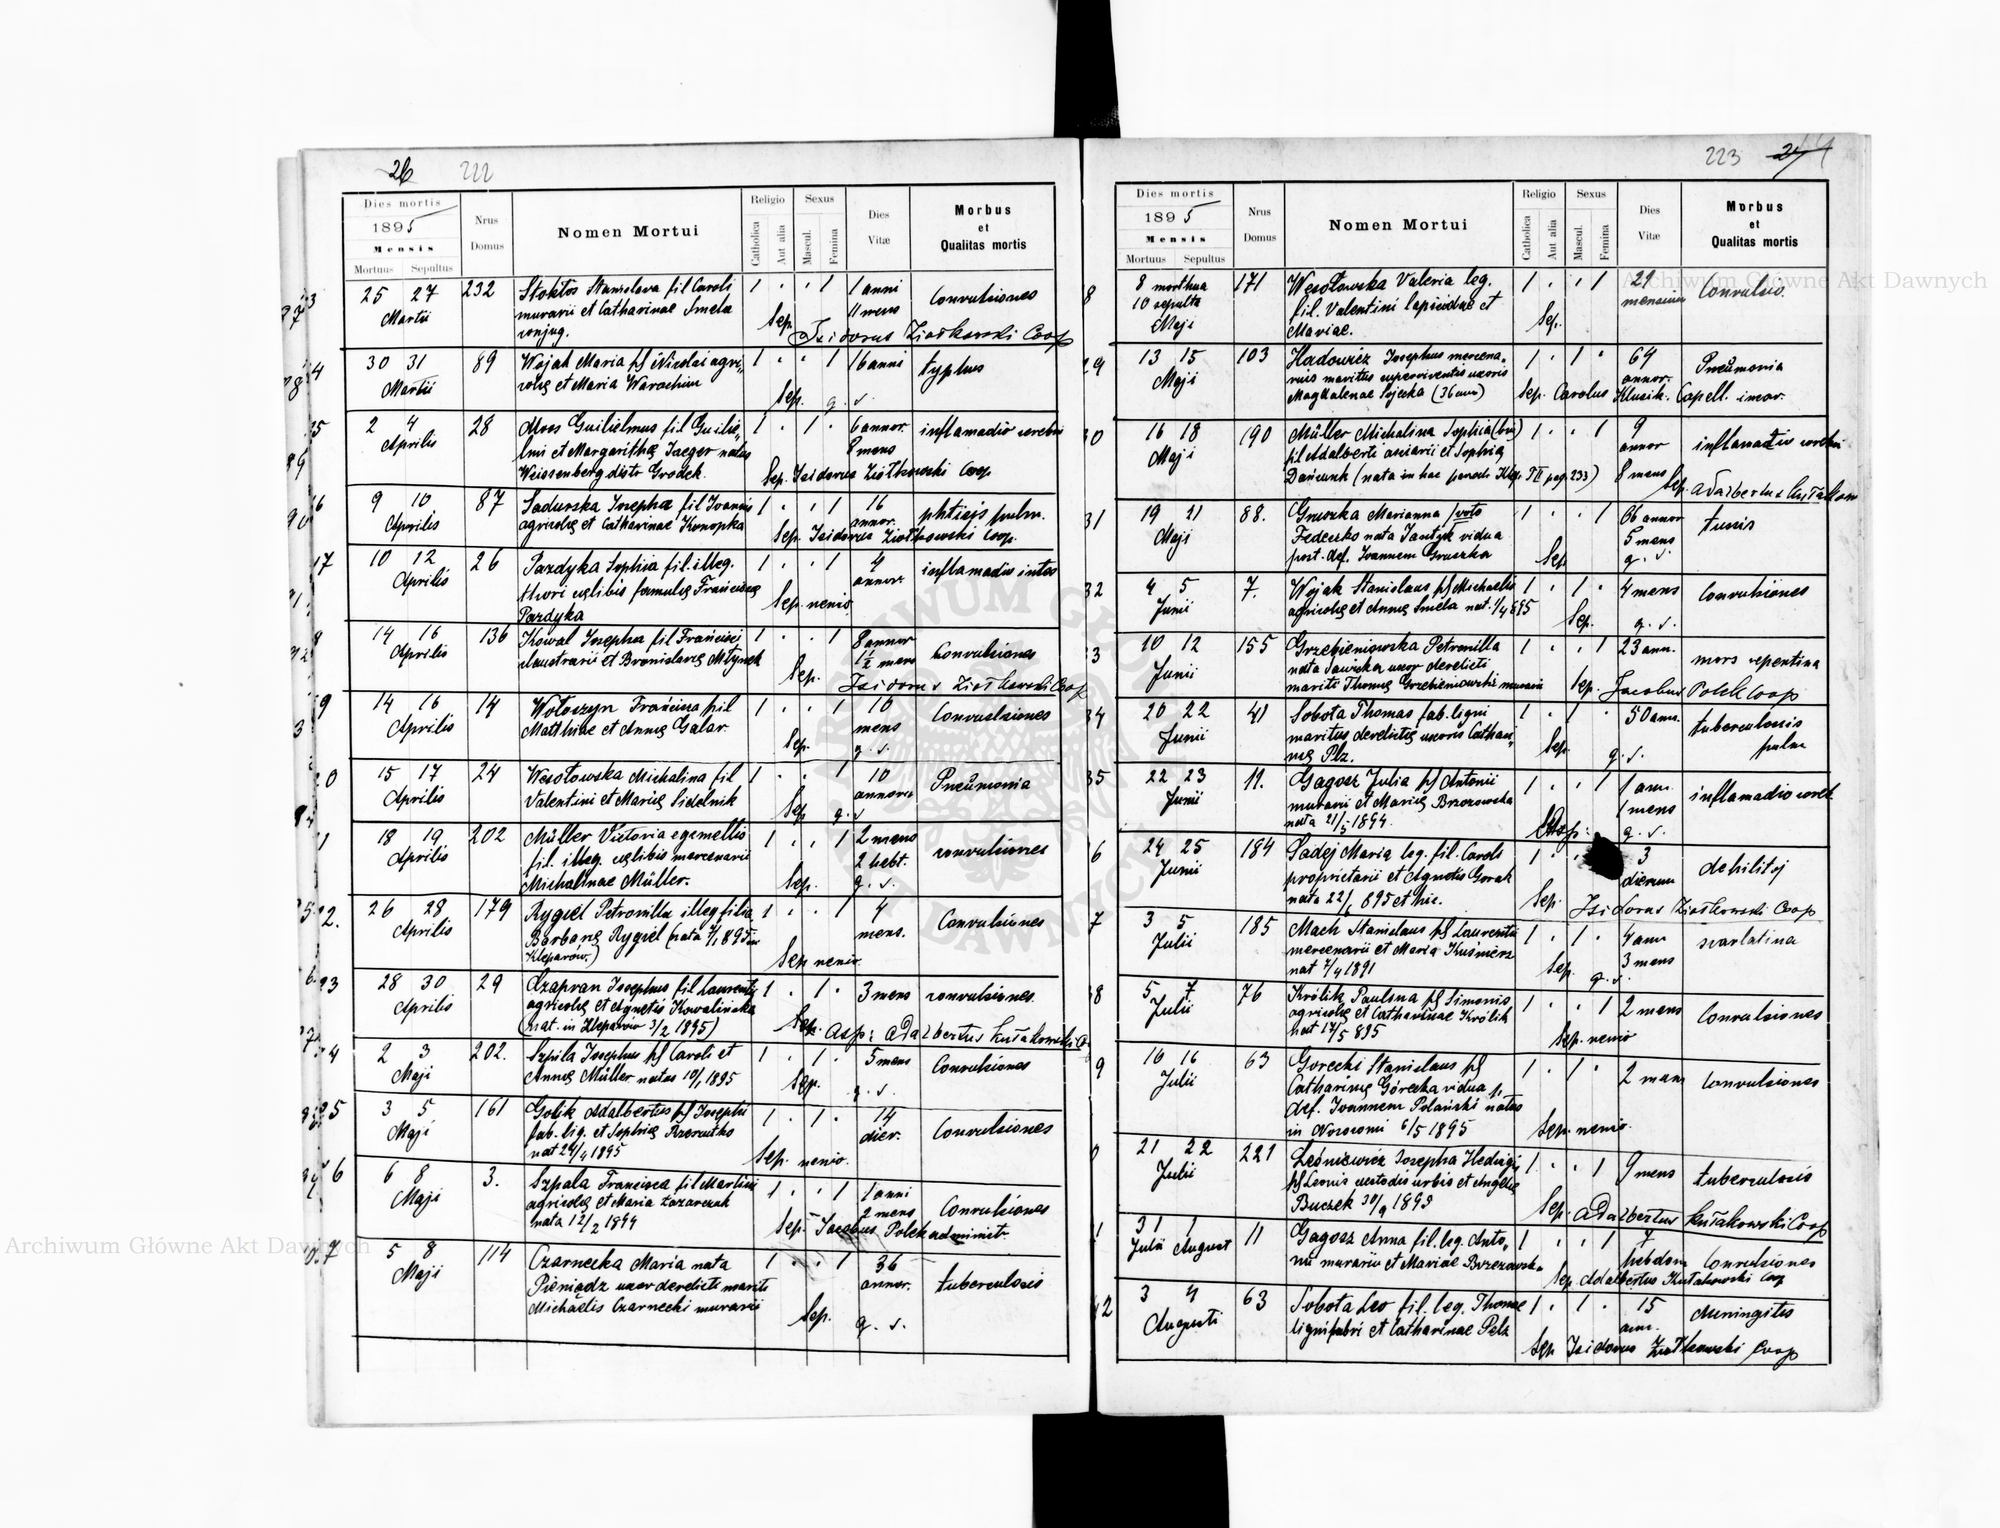 26 222
Dies mortis
1895
Mensis
Mortuus Sepultus
Nrus
Domus
Nomen Mortui
Religio
Catholica
Aut alia
Sexus
Mascul.
Femina
Dies
Vitæ
Morbus
et
Qualitas mortis
25 27 232 Stanislava fil Caroli 1 . . 1 1 anni Convulsiones
Martii murarii et Catharinae Smela 11 mens
conjug. Sep. Isidorus Ziołkowski Coop
30 31 89 Wojak Maria fil Nicolai agri, 1 . . 1 16 anni typhus
Martii colę et Maria
Sep. q. s.
2 4 28 Moos Guilielmus fil Guiliel, 1 . 1 . 6 annor. inflamadio cerebri
Aprilis mi et Margarithę Jaeger natus 8 mens
Weissenberg distr Grodek. Sep. Isidorus Ziołkowski Coop
9 10 87 Sadurska Josepha fil Joannis 1 . . 1 16 phtisis pulm.
Aprilis agricolę et Catharinae Konopka annor.
Sep. Isidorus Ziołkowski Coop.
10 12 26 Pazdyka Sophia fil. illeg. 1 . . 1 4
Aprilis thori cęlibis famulę Franciscę annor.
Pazdyka Sep. nemo
14 16 136 Kowal Josepha fil Francisci 1 . . 1 8 annor Convulsiones
Aprilis et Bronislavę Młynek 1/2 mens
Sep. Isidorus Ziołkowski Coop
14 16 14 Wołoszyn Francisca fil 1 . . 1 10 Convulsiones
Aprilis Matthiae et Annę Galar. mens
Sep. q. s.
15 17 24 Wesołowska Michalina fil 1 . . 1 10 Pneumonia
Aprilis Valentini et Marię Sidelnik annorum
Sep. q. s
18 19 202 Müller Victoria e gemellis 1 . . 1 2 mens convulsiones
Aprilis fil. illeg. cęlibis mercenarii 2 hebt.
Michalinae Müller. Sep. q. s.
26 28 179 Rygiel Petronilla illeg filia 1 . . 1 4 Convulsiones
Aprilis Barbarę Rygiel (nata 7/1 895 in mens.
Kleparow.) Sep nemo
28 30 29 Czapran Josephus fil Laurentii 1 . 1 . 3 mens convulsiones.
Aprilis agricolę et Agnetis Kowalińska
(nat. in Kleparow 3/2 1895) Sep. Asp: Adalbertus Kułakowski
2 3 202. Szpila Josephus fil Caroli et 1 . 1 . 5 mens Convulsiones
Maji Annę Müller natus 10/1 1895
Sep. q. s.
3 5 161 Golik Adalbertus fil Josephi 1 . 1 . 14 Convulsiones
Maji fab. lig. et Sophię dier.
nat 20/4 1895 Sep. nemo.
6 8 3. Szpala Francisca fil Martini 1 . . 1 1 anni Convulsiones
Maji agricolę et Maria Łazarczuk 2 mens
nata 12/2 1894 Sep. Jacobus Polek administr.
5 8 114 Czarnecka Maria nata 1 . . 1 36 tuberculosis
Maji Pieniądz uxor derelicti mariti annor.
Michaëlis Czarnecki murarii
Sep. q. s.
223
Dies mortis
1895
Mensis
Mortuus Sepultus
Nrus
Domus
Nomen Mortui
Religio
Catholica
Aut alia
Sexus
Mascul.
Femina
Dies
Vitæ
Morbus
et
Qualitas mortis
8 mortua 171 Wesołowska Valeria leg. 1 . . 1 21 Convulsio.
10 sepulta fil. Valentini lapicidae et mensium
Maji Mariae. Sep.
13 15 103 Hadowicz Josephus mercena- 1 . 1 . 64 Pneumonia
Maji rius maritus superviventis uxoris annor.
Magdalenae Sojecka (36 ann) Sep. Carolus Klusik. Capell.
16 18 190 Müller Michalina Sophia (bin) 1 . . 1 9 inflamadio cerebri
Maji fil Adalberti et Sophię annor
Dańczuk (nata in hac paroch. T II pag. 233) 8 mens Sep. Adalbertus Kułakow
19 21 88. Gruszka Marianna 1voto 1 . . 1 66 annor tussis
Maji Fedeczko nata Jantyk vidua 5 mens
post. def. Joannem Gruszka Sep q. s.
4 5 7. Wojak Stanislaus fil Michaelis 1 . 1 . 4 mens Convulsiones
Junii agricolę et Annę Smela nat. 1/4 895
Sep. q. s.
10 12 155 Grzebieniowska Petronilla 1 . . 1 23 ann. mors repentina
Junii nata uxor derelicti
mariti Thomę Grzebieniowski murarii Sep. Jacobus Polek Coop
20 22 41 Sobota Thomas fab. ligni 1 . 1 . 50 ann. tuberculosis
Junii maritus derelictę uxoris Cathari, pulm
nę Plz. Sep. q. s.
22 23 11. Gagosz Julia fil Antonii 1 . . 1 1 ann. inflamadio cereb.
Junii murarii et Marię Brzozowska 1 mens
nata 21/5 1894. q. s.
24 25 184 Sadej Maria leg. fil. Caroli 1 . . 3 debilitas
Junii proprietarii et Agnetis Gorak dierum
nata 22/6 895 et hic. Sep. Isidorus Ziołkowski Coop
3 5 185 Mach Stanislaus fil Laurentii 1 . 1 . 4 ann scarlatina
Julii mercenarii et Maria Kuśmierz 3 mens
nat 7/4 1891 Sep. q. s.
5 7 76 Królik Paulina fil Simonis 1 . . 1 2 mens Convulsiones
Julii agricolę et Catharinae Królik
nat 17/5 895 Sep. nemo
16 16 63 Gorecki Stanislaus fil 1 . 1 . 2 mens convulsiones
Julii Catharinę Górecka vidua p.
def. Joannem Polański natus
in 6/5 1895 Sep. nemo.
21 22 221 Leśniewicz Josepha Hedvigis 1 . . 1 9 mens tuberculosis
Julii fil Leonis custodis urbis et Angelę
Buczek 30/9 1895 Sep. Adalbertus Kułakowski Coop
31 1 11 Gagosz Anna fil. leg. Anto, 1 . . 1 7 Convulsiones
Julii August nii murarii et Mariae Brzozowska hebdom
Sep. Adalbertus Kułakowski Coop
3 4 63 Sobota Leo fil. leg. Thomae 1 . 1 . 15 Meningitis
Augusti lignifabri et Catharinae Pelz ann.
Sep Isidorus Ziołkowski Coop
Archiwum Główne Akt Dawnych
Archiwum Główne Akt Dawnych
ARCHIWUM GŁÓWNE AKT DAWNYCH